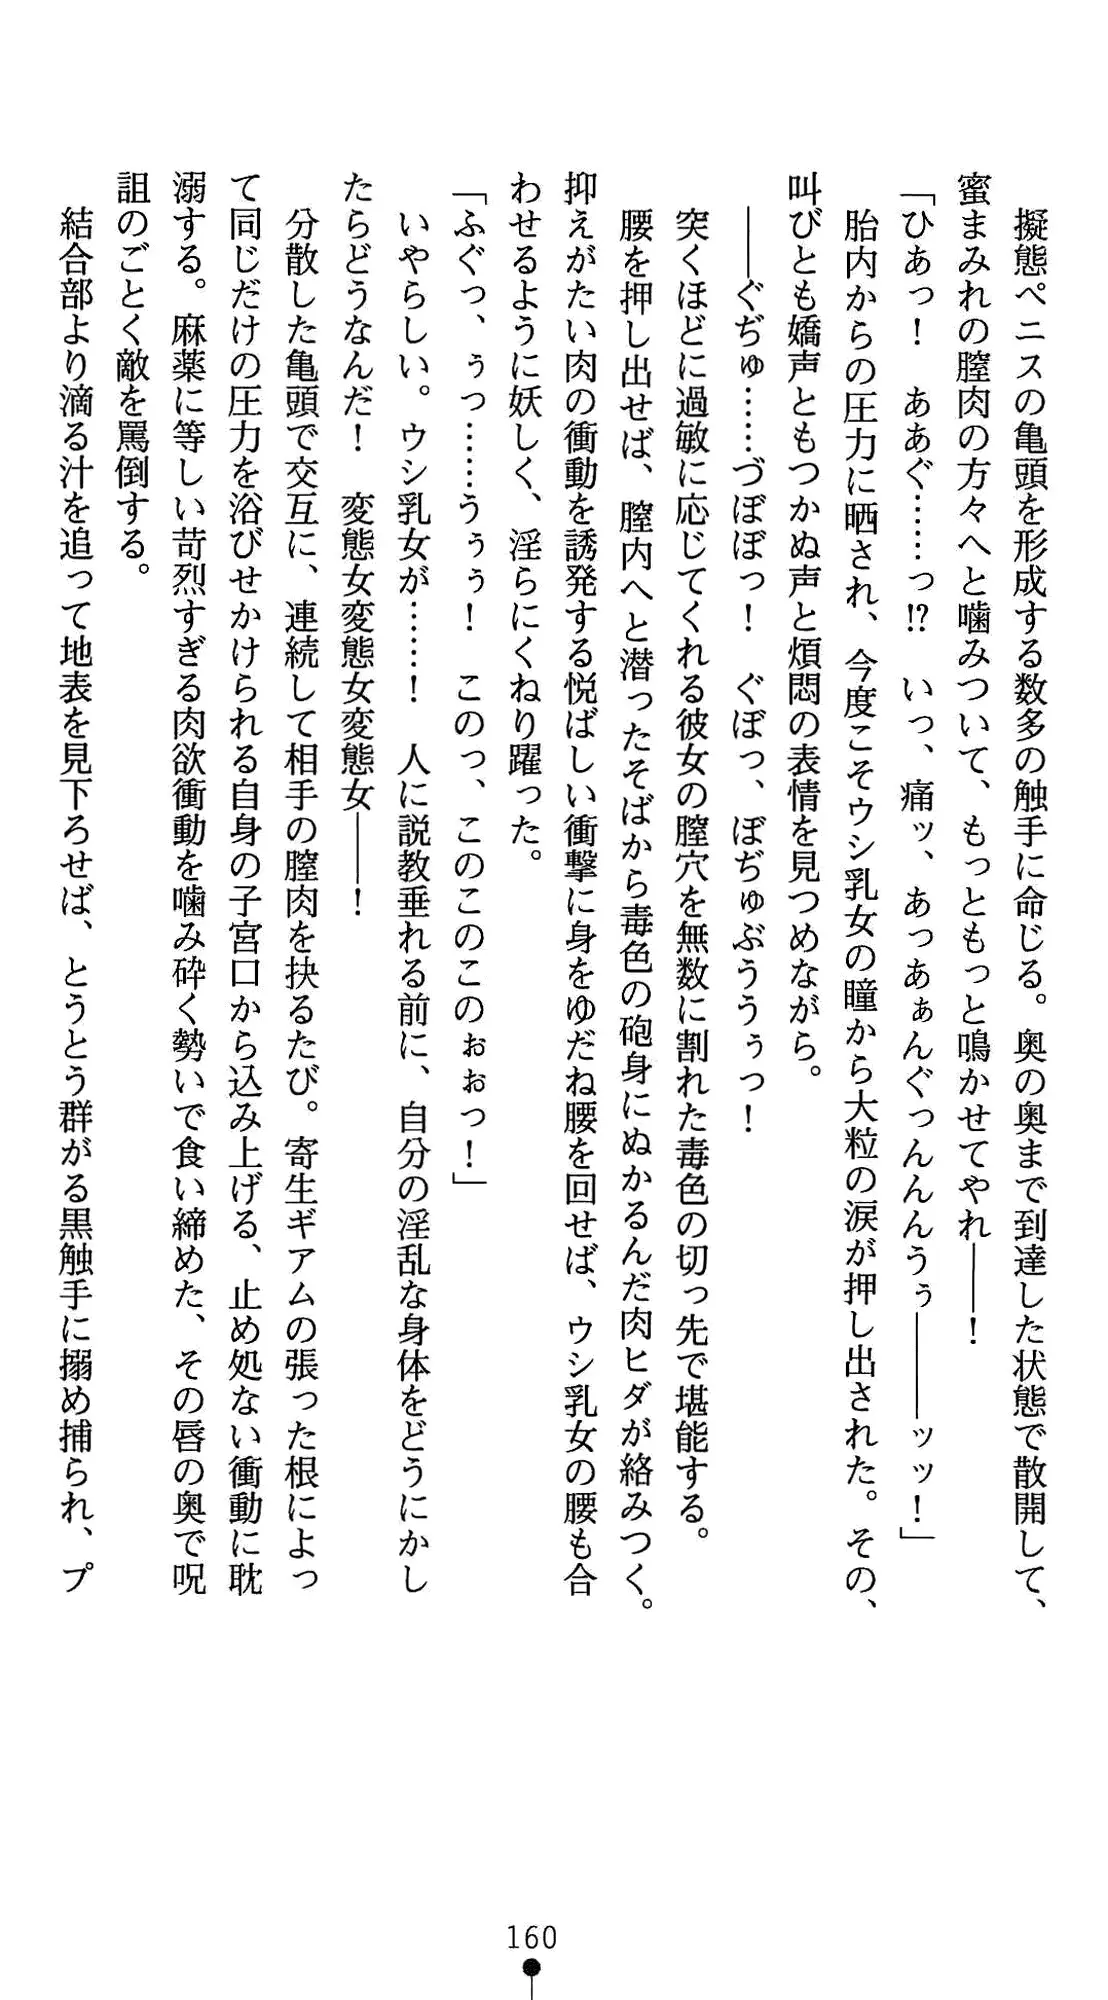 擬態ペニスの亀頭を形成する数多の触手に命じる。奥の奥まで到達した状態で散開して、
蜜まみれの膣肉の方々へと噛みついて、もっともっと鳴かせてやれ――！
「ひあっ！　ああぐ……っ!?　いっ、痛ッ、あっあぁんぐっんんんうぅ―――ッッ！」
胎内からの圧力に晒され、今度こそウシ乳女の瞳から大粒の涙が押し出された。その、
叫びとも嬌声ともつかぬ声と煩悶の表情を見つめながら。
――ぐぢゅ……づぼぼっ！　ぐぼっ、ぼぢゅぶううぅっ！
突くほどに過敏に応じてくれる彼女の膣穴を無数に割れた毒色の切っ先で堪能する。
腰を押し出せば、膣内へと潜ったそばから毒色の砲身にぬかるんだ肉ヒダが絡みつく。
抑えがたい肉の衝動を誘発する悦ばしい衝撃に身をゆだね腰を回せば、ウシ乳女の腰も合
わせるように妖しく、淫らにくねり躍った。
「ふぐっ、ぅっ……うぅぅ！　このっ、このこのこのぉぉっ！」
いやらしい。ウシ乳女が……！　人に説教垂れる前に、自分の淫乱な身体をどうにかし
たらどうなんだ！　変態女変態女変態女――！
分散した亀頭で交互に、連続して相手の膣肉を抉るたび。寄生ギアムの張った根によっ
て同じだけの圧力を浴びせかけられる自身の子宮口から込み上げる、止め処ない衝動に耽
溺する。麻薬に等しい苛烈すぎる肉欲衝動を噛み砕く勢いで食い締めた、その唇の奥で呪
詛のごとく敵を罵倒する。
結合部より滴る汁を追って地表を見下ろせば、とうとう群がる黒触手に搦め捕られ、プ
160